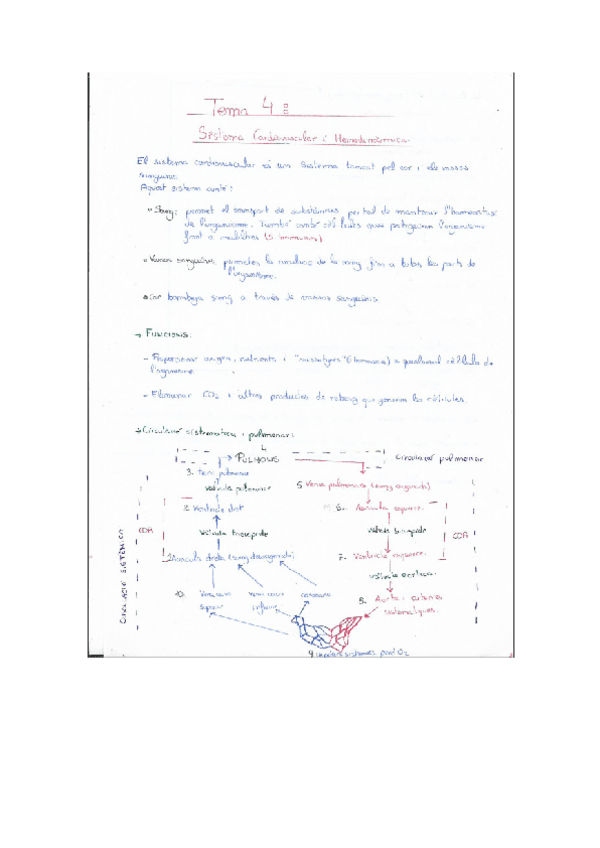 Tema 4:
Sistema Cardiovascular i Hemodinàmica.
El sistema cardiovascular és un sistema tancat pel cor i els vasos
sanguinis
Aquest sistema amb:
Sang: permet el transport de substàncies per tal de mantenir l'homeostasi
de l'organisme. També amb cèl·lules que protegeixen l'organisme
front a malalties (S. immunari)
Vasos sanguinis, permeten la de la sang fins a totes les parts de
l'organisme.
Cor bombeja sang a través de vasos sanguinis
→ FUNCIONS:
- Proporcionar oxigen, nutrients i "missatgers" (hormones) a qualsevol cèl·lula de
l'organisme
- Eliminar CO2 i altres productes de rebuig que generen les cèl·lules.
→ Circulació sistemàtica i pulmonar:
4
PULMONS
circulació pulmonar
3. Tronc pulmonar
vàlvula pulmonar
5. Venes pulmonars (sang oxigenada)
2. Ventricle dret
6. Aurícula esquerre.
COR
vàlvula tricúspide
vàlvula bicúspide
COR
1. Aurícula dreta (sang desoxigenada)
7. Ventricle esquerre.
vàlvula aòrtica.
10. Vena cava
superior
vena cava
inferior
8. Aorta i artèries
sistemàtiques.
CIRCULACIÓ SISTÈMICA
9. capil·lars sistèmics perd O2